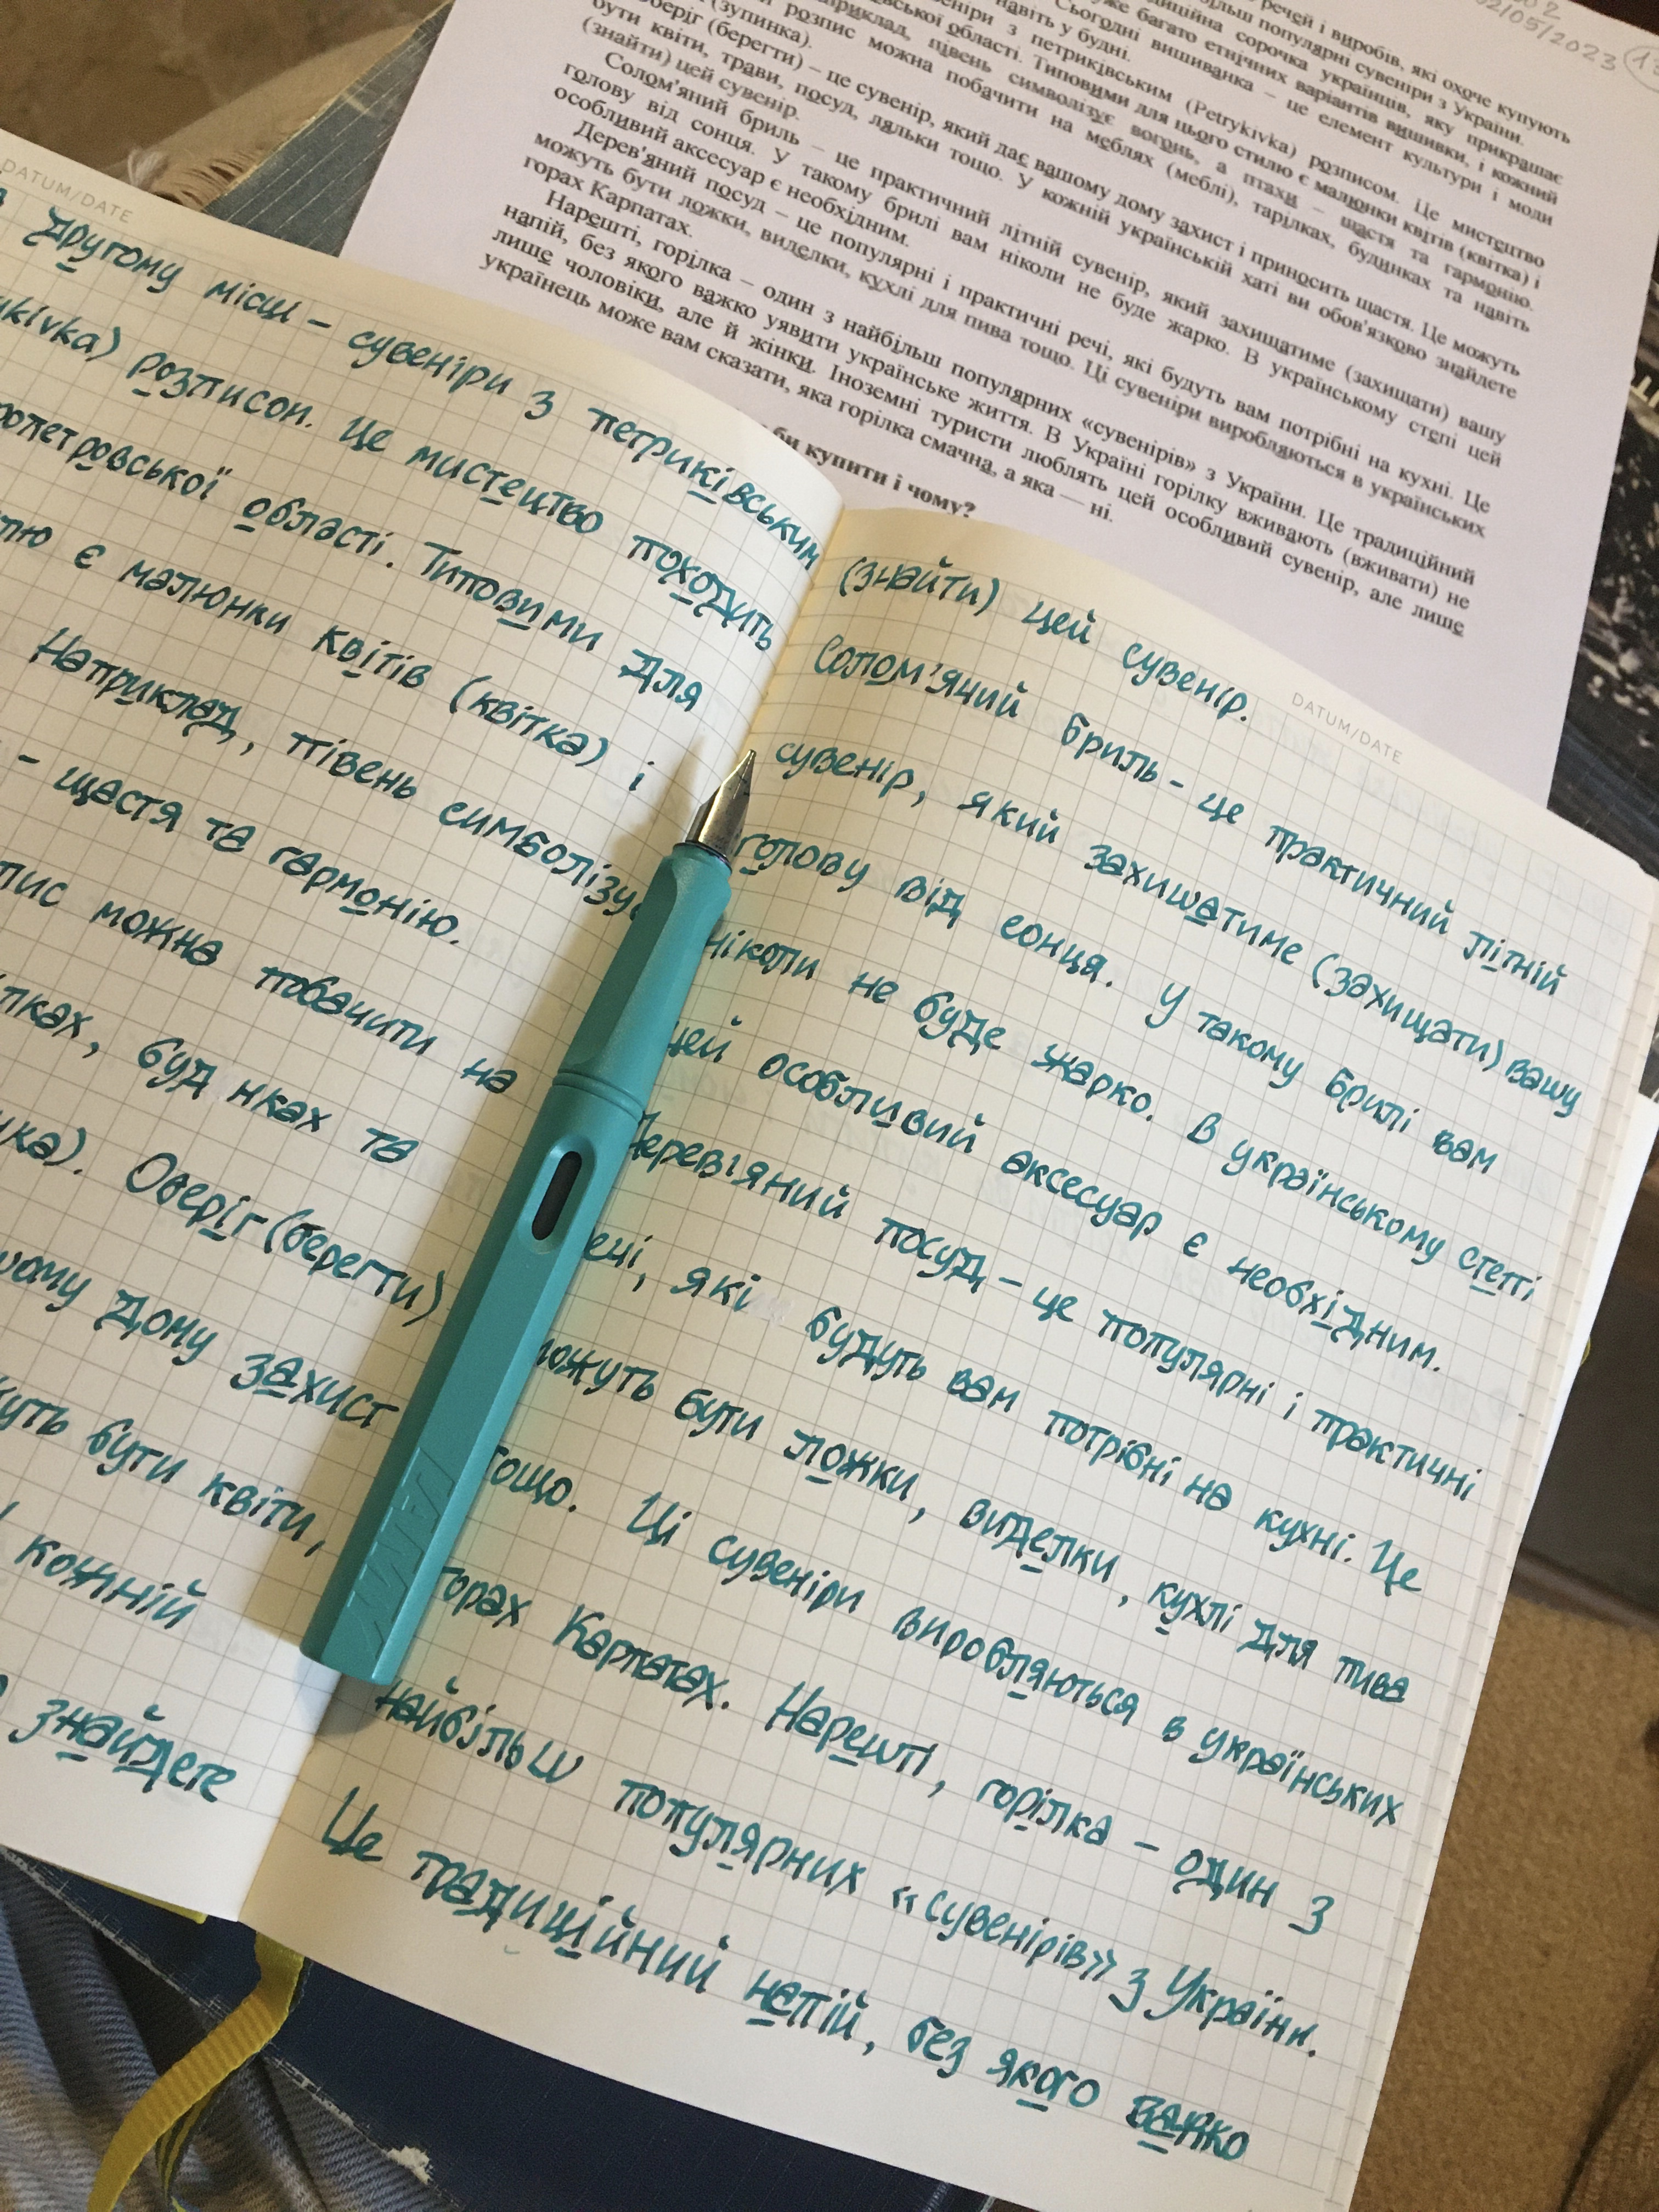 02/05/2023
речей і виробів, які охоче купують
більш популярні сувеніри з України.
сорочка українців, яку прикрашає
багато етнічних варіантів вишивки, і кожний
Сьогодні вишиванка – це елемент культури і моди
навіть у будні.
з петриківським (Petrykivka) розписом. Це мистецтво
області. Типовими для цього стилю є малюнки квітів (квітка) і
півень символізує вогонь, а птахи – щастя та гармонію.
розпис можна побачити на меблях (меблі), тарілках, будинках та навіть
(зупинка).
(берегти) – це сувенір, який дає вашому дому захист і приносить щастя. Це можуть
бути квіти, трави, посуд, ляльки тощо. У кожній українській хаті ви обов'язково знайдете
(знайти) цей сувенір.
Солом'яний бриль – це практичний літній сувенір, який захищатиме (захищати) вашу
голову від сонця. У такому брилі вам ніколи не буде жарко. В українському степі цей
особливий аксесуар є необхідним.
Дерев'яний посуд – це популярні і практичні речі, які будуть вам потрібні на кухні. Це
можуть бути ложки, виделки, кухлі для пива тощо. Ці сувеніри виробляються в українських
горах Карпатах.
Нарешті, горілка – один з найбільш популярних «сувенірів» з України. Це традиційний
напій, без якого важко уявити українське життя. В Україні горілку вживають (вживати) не
лише чоловіки, але й жінки. Іноземні туристи люблять цей особливий сувенір, але лише
українець може вам сказати, яка горілка смачна, а яка — ні.
би купити і чому?
DATUM/DATE
другому місці – сувеніри з петриківським
розписом. Це мистецтво походить
області. Типовими для
є малюнки квітів (квітка) і
Наприклад, півень символізує
– щастя та гармонію.
можна побачити на
буд нках та
Оберіг (берегти)
дому захист
бути квіти,
кожній
знайдете
DATUM/DATE
(знайти) цей сувенір.
Солом'яний бриль – це практичний літній
сувенір, який захишатиме (захищати) вашу
голову від сонця. У такому брилі вам
ніколи не буде жарко. В українському степі
цей особливий аксесуар є необхідним.
Дерев'яний посуд – це популярні і практичні
які будуть вам потрібні на кухні. Це
можуть бути ложки, виделки, кухлі для пива
тощо. Ці сувеніри виробляються в українських
горах Карпатах. Нарешті, горілка – один з
найбільш популярних «сувенірів» з України.
Це традиційний напій, без якого важко
LAMY